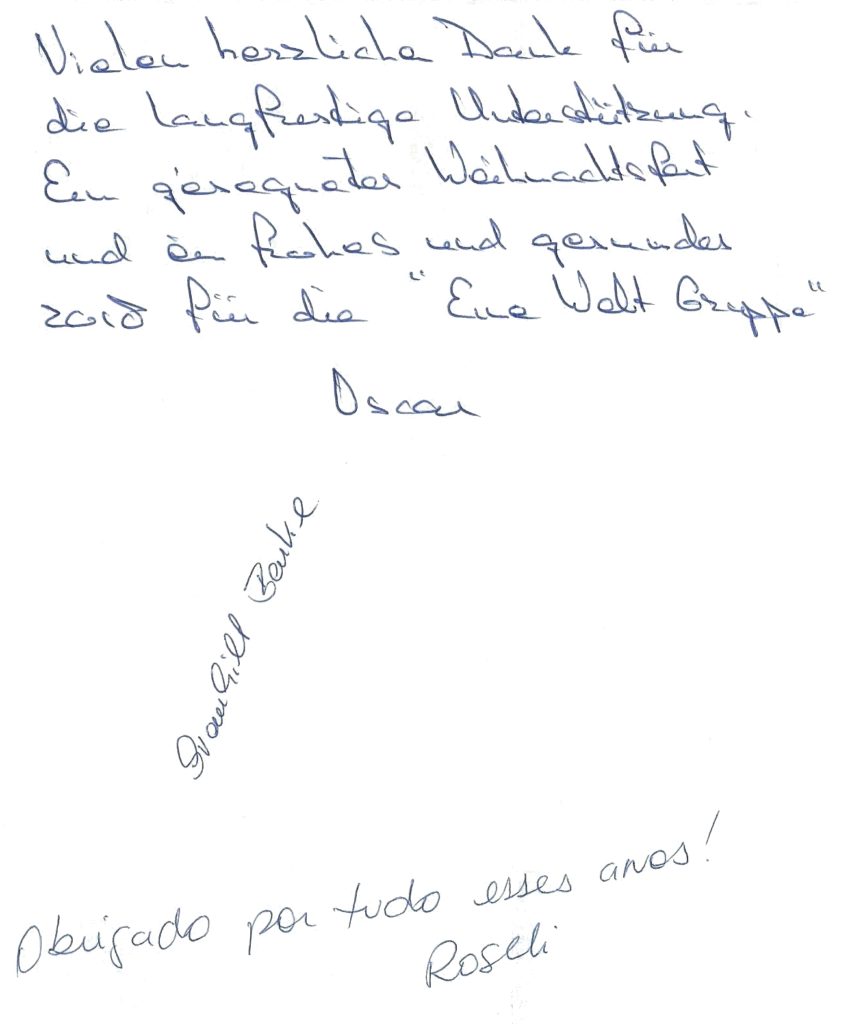 Vielen herzliche Dank für
die langfristige Unterstützung.
Ein gesegnetes Weihnachtsfest
und ein frohes und gesundes
2018 für die "Eine Welt Gruppe"
Oscar
Obrigado por tudo esses anos!
Roseli